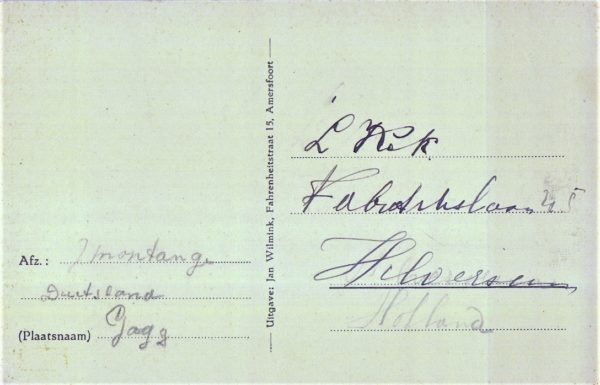 Uitgave: Jan Wilmink, Fahrenheitstraat 15, Amersfoort
L Kok
Fabritiuslaan 45
Hilversum
Holland
Afz.: J montang
Duitsland
(Plaatsnaam) Gagg